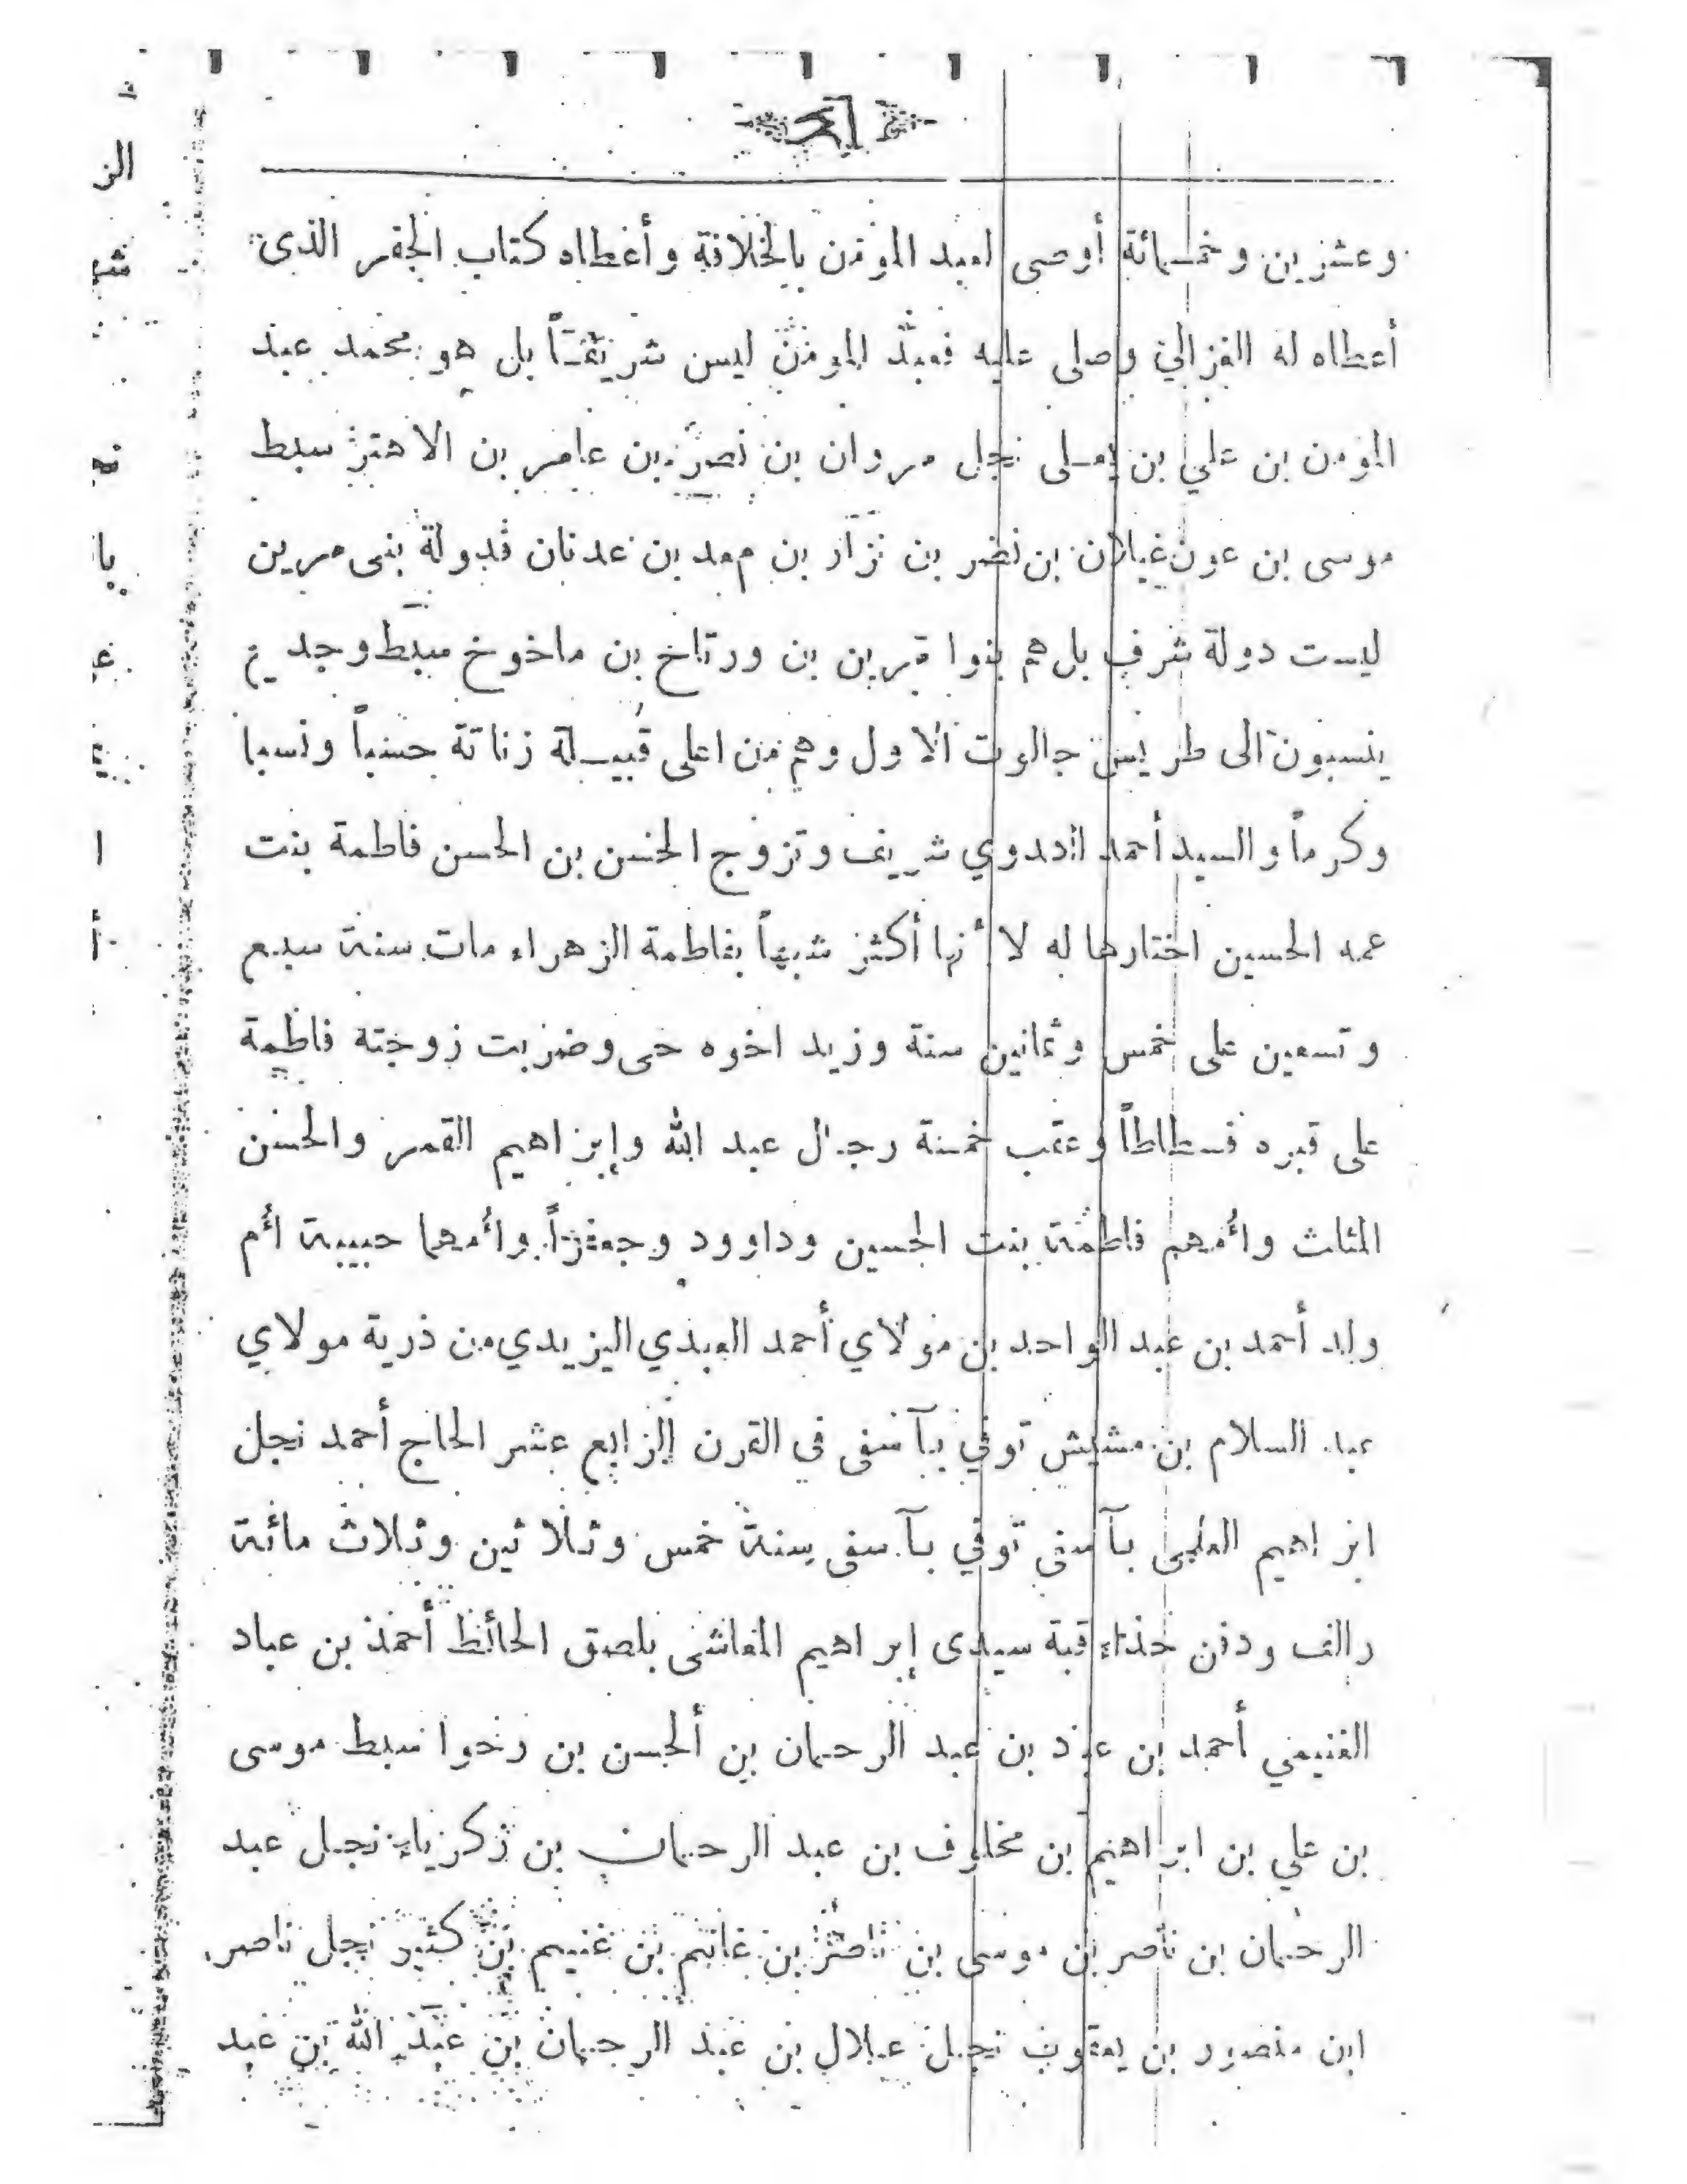 وعشرين وخمسمائة أوصى لعبد المومن بالخلافة وأعطاه كتاب الجفر الذى
أعطاه له الغزالي وصلى عليه فعبد المومن ليس شريفاً بل هو محمد عبد
المومن بن علي بن يعلى نجل مروان بن نصر بن عامر بن الاهتر سبط
موسى بن عون غيلان بن نضر بن نزار بن معد بن عدنان فدولة بنى مرين
ليست دولة شرف بل هم بنوا مرين بن ورتاخ بن ماخوخ سبط وجديم
ينسبون الى طريس جالوت الاول وهم من اعلى قبيلة زناتة حسباً ونسبا
وكرماً والسيد أحمد البدوي شريف وتزوج الحسن بن الحسن فاطمة بنت
عمه الحسين اختارها له لا نها أكثر شبهاً بفاطمة الزهراء مات سنة سبع
وتسعين على خمس وثمانين سنة وزيد اخوه حى وضربت زوجته فاطمة
على قبره فسطاطاً وعقب خمسة رجال عبد الله وإبراهيم القمر والحسن
المثلث وأمهم فاطمة بنت الحسين وداوود وجعفراً وأمهما حبيبة أم
ولد أحمد بن عبد الواحد بن مولاي أحمد العبدي اليزيدي من ذرية مولاي
عبد السلام بن مشيش توفي بآسفى فى القرن الرابع عشر الحاج أحمد نجل
ابراهيم العلمى بآسفى توفي بآسفى سنة خمس وثلاثين وثلاث مائة
والف ودفن حذاء قبة سيدى إبراهيم الماشى بلصق الحائط أحمد بن عباد
الغنيمي أحمد بن عباد بن عبد الرحمان بن ألحسن بن رحوا سبط موسى
بن علي بن ابراهيم بن مخلوف بن عبد الرحمان بن زكرياء نجل عبد
الرحمان بن ناصر بن موسى بن ناصر بن غانم بن غنيم بن كثير نجل ناصر
ابن منصور بن يعقوب نجل علال بن عبد الرحمان بن عبد الله بن عبد